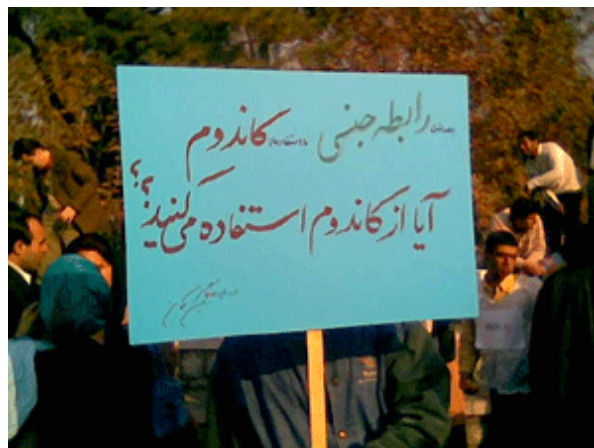 رابطه جنسی کاندوم
آیا از کاندوم استفاده می‌کنید؟؟